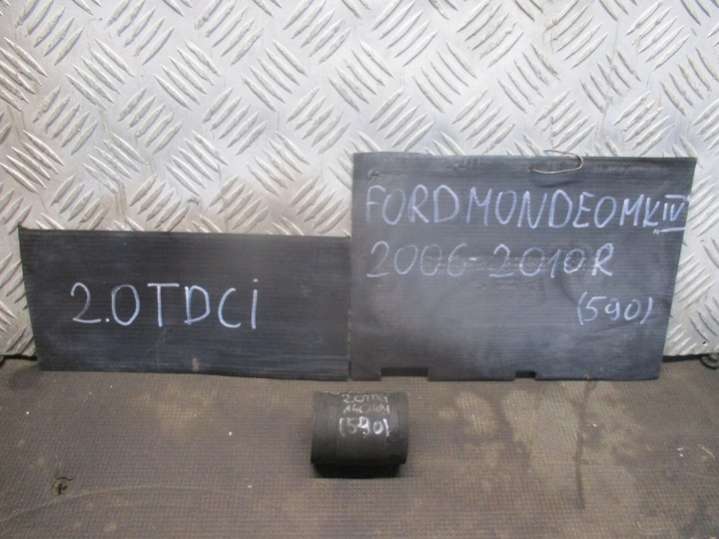 2.0TDCi
FORD MONDEO MK IV
2006-2010R
(590)
2.0TDCi
140KM
(590)